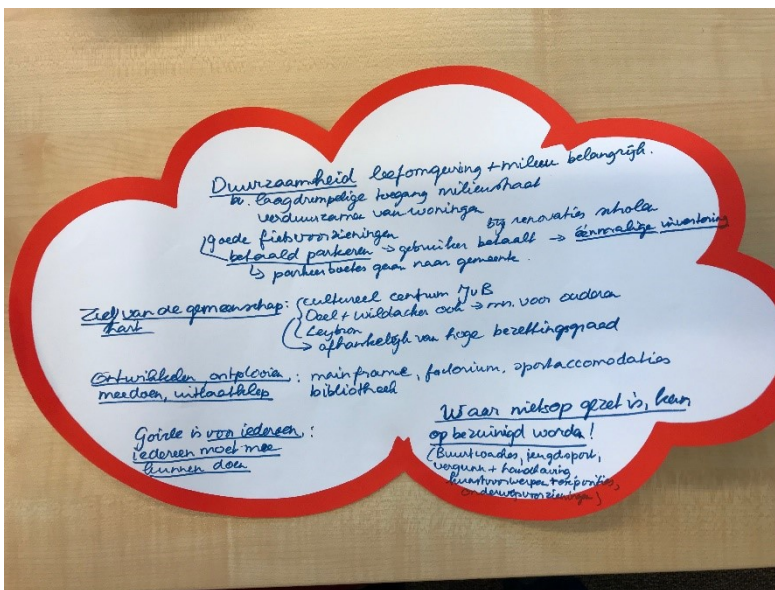 Duurzaamheid leefomgeving + milieu belangrijk.
bv. laagdrempelige toegang milieustraat
verduurzamen van woningen
bij renovaties scholen
goede fietsvoorzieningen
betaald parkeren → gebruiker betaalt → éénmalige investering
↳ parkeerboetes gaan naar gemeente.
Ziel van de gemeenschap: cultureel centrum JvB
hart
Doel + Wildacker ook → mn. voor ouderen
Leybron
→ afhankelijk van hoge bezettingsgraad
Ontwikkelen ontplooien, : mainframe, factorium, sportaccomodaties
meedoen, uitlaatklep bibliotheek
Goirle is voor iedereen, :
iedereen moet mee
kunnen doen
Waar niets op gezet is, kan
op bezuinigd worden!
(Buurtvondies, jeugdsport,
vergunn + handhaving
kunstvoorwerpen + exposities,
onderwijsvoorzieningen)